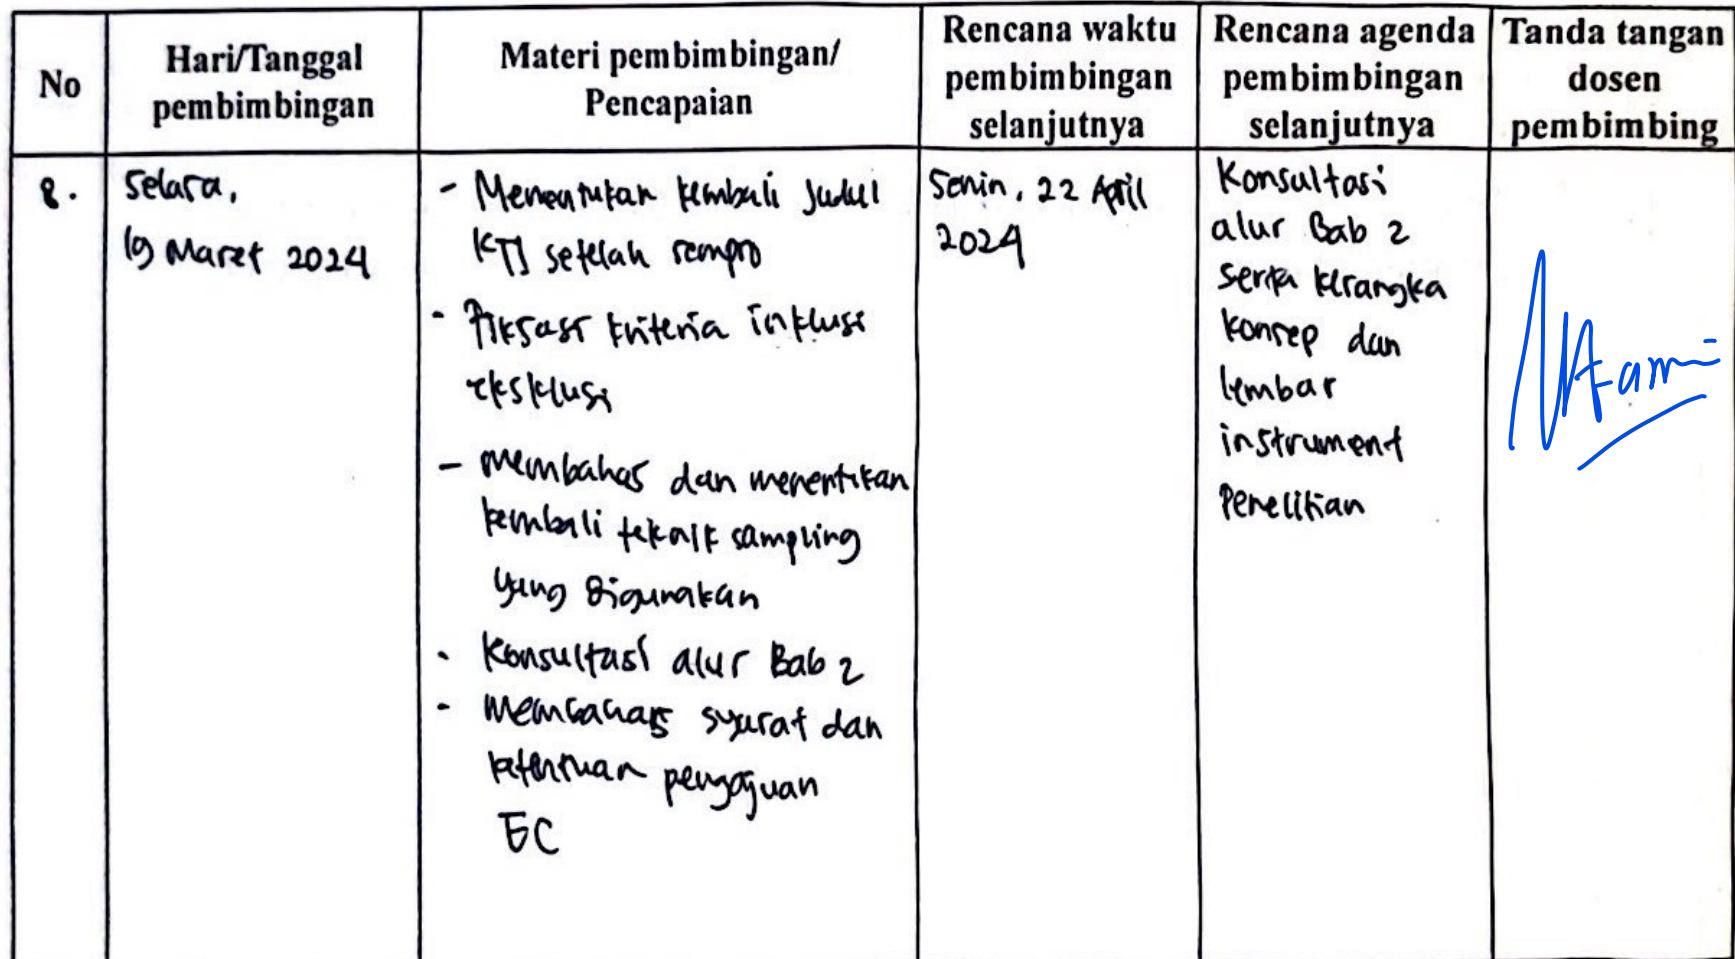 No
Hari/Tanggal
pembimbingan
Materi pembimbingan/
Pencapaian
Rencana waktu
pembimbingan
selanjutnya
Rencana agenda
pembimbingan
selanjutnya
Tanda tangan
dosen
pembimbing
8.
Selasa,
19 Maret 2024
- Menentukan kembali Judul
KTI setelah sempro
- Fiksasi kriteria inklusi
eksklusi
- membahas dan menentukan
kembali teknik sampling
yang digunakan
- Konsultasi alur Bab 2
- Membahas syarat dan
ketentuan pengajuan
EC
Senin, 22 April
2024
Konsultasi
alur Bab 2
serta kerangka
konsep dan
lembar
instrument
Penelitian